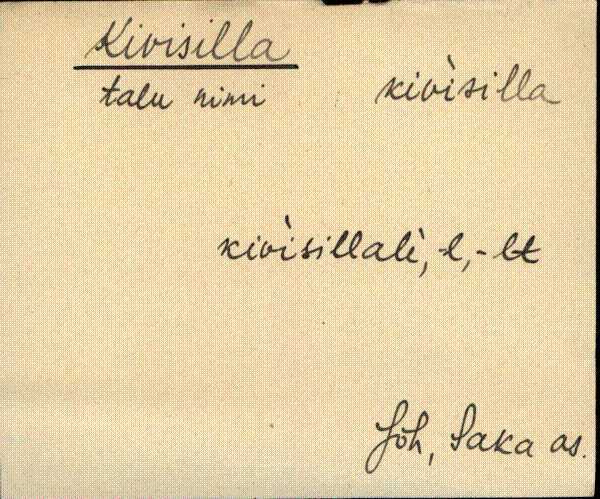 Kivisilla
talu nimi kivìsilla
kivìsillalè, -l, -lt
Jõh, Saka as.